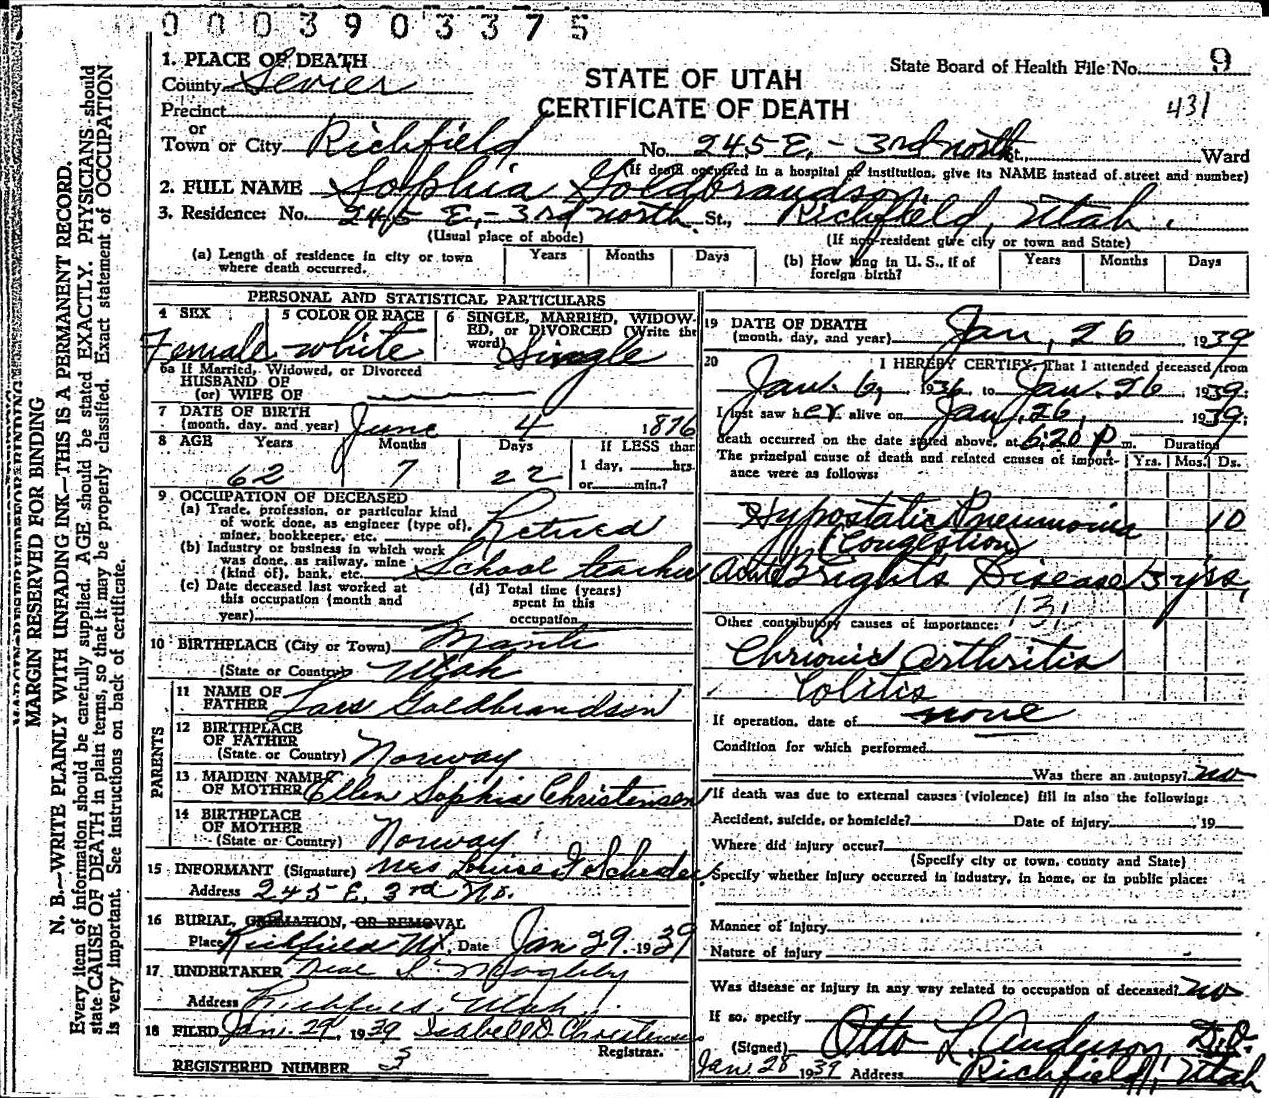 0003903375
1. PLACE OF DEATH
County Sevier
STATE OF UTAH
CERTIFICATE OF DEATH
State Board of Health File No. 9
431
Precinct
or
Town or City Richfield No. 245 E. - 3rd north St., Ward
(If death occurred in a hospital or institution, give its NAME instead of street and number)
2. FULL NAME Sophia Goldbrandson
3. Residence: No. 245 E. - 3rd north St., Richfield, Utah.
(Usual place of abode) (If non-resident give city or town and State)
(a) Length of residence in city or town where death occurred. Years Months Days
(b) How long in U. S., if of foreign birth? Years Months Days
PERSONAL AND STATISTICAL PARTICULARS
4 SEX Female
5 COLOR OR RACE white
6 SINGLE, MARRIED, WIDOWED, or DIVORCED (Write the word) Single
6a If Married, Widowed, or Divorced
HUSBAND OF
(or) WIFE OF
7 DATE OF BIRTH
(month, day, and year) June 4 1876
8 AGE Years Months Days If LESS than
62 7 22 1 day, hrs.
or min.?
9 OCCUPATION OF DECEASED
(a) Trade, profession, or particular kind
of work done, as engineer (type of),
miner, bookkeeper, etc. Retired
(b) Industry or business in which work
was done, as railway, mine
(kind of), bank, etc. School teacher
(c) Date deceased last worked at
this occupation (month and
year)
(d) Total time (years)
spent in this
occupation
10 BIRTHPLACE (City or Town) Manti
(State or Country) Utah
PARENTS
11 NAME OF
FATHER Lars Goldbrandson
12 BIRTHPLACE
OF FATHER
(State or Country) Norway
13 MAIDEN NAME
OF MOTHER Ellen Sophia Christensen
14 BIRTHPLACE
OF MOTHER
(State or Country) Norway
15 INFORMANT (Signature) Mrs Louise
Address 245 E. 3rd No.
16 BURIAL, CREMATION, OR REMOVAL
Place Richfield Ut. Date Jan 29 1939
17 UNDERTAKER Neal S. Magleby
Address Richfield, Utah.
18 FILED Jan. 29, 1939 Isabell D. Christensen
Registrar.
REGISTERED NUMBER 3
19 DATE OF DEATH
(month, day, and year) Jan, 26 1939
20 I HEREBY CERTIFY, That I attended deceased from
Jan. 6, 1936, to Jan. 26 1939;
I last saw her alive on Jan. 26, 1939;
death occurred on the date stated above, at 6:20 P. m. Duration
The principal cause of death and related causes of importance were as follows: Yrs. Mos. Ds.
Hypostatic Pneumonia 10
(Congestion)
Acute Brights Disease 3 yrs,
Other contributory causes of importance: 131
Chrionic arthritis
Colitis
If operation, date of none
Condition for which performed
Was there an autopsy? no
If death was due to external causes (violence) fill in also the following:
Accident, suicide, or homicide? Date of injury , 19
Where did injury occur?
(Specify city or town, county and State)
Specify whether injury occurred in industry, in home, or in public place:
Manner of injury
Nature of injury
Was disease or injury in any way related to occupation of deceased? no
If so, specify
(Signed) Otto L. Anderson, D.O.
Jan. 28 1939 Address Richfield, Utah
MARGIN RESERVED FOR BINDING
N. B.—WRITE PLAINLY WITH UNFADING INK—THIS IS A PERMANENT RECORD.
Every item of information should be carefully supplied. AGE should be stated EXACTLY. PHYSICIANS should
state CAUSE OF DEATH in plain terms, so that it may be properly classified. Exact statement of OCCUPATION
is very important. See instructions on back of certificate.